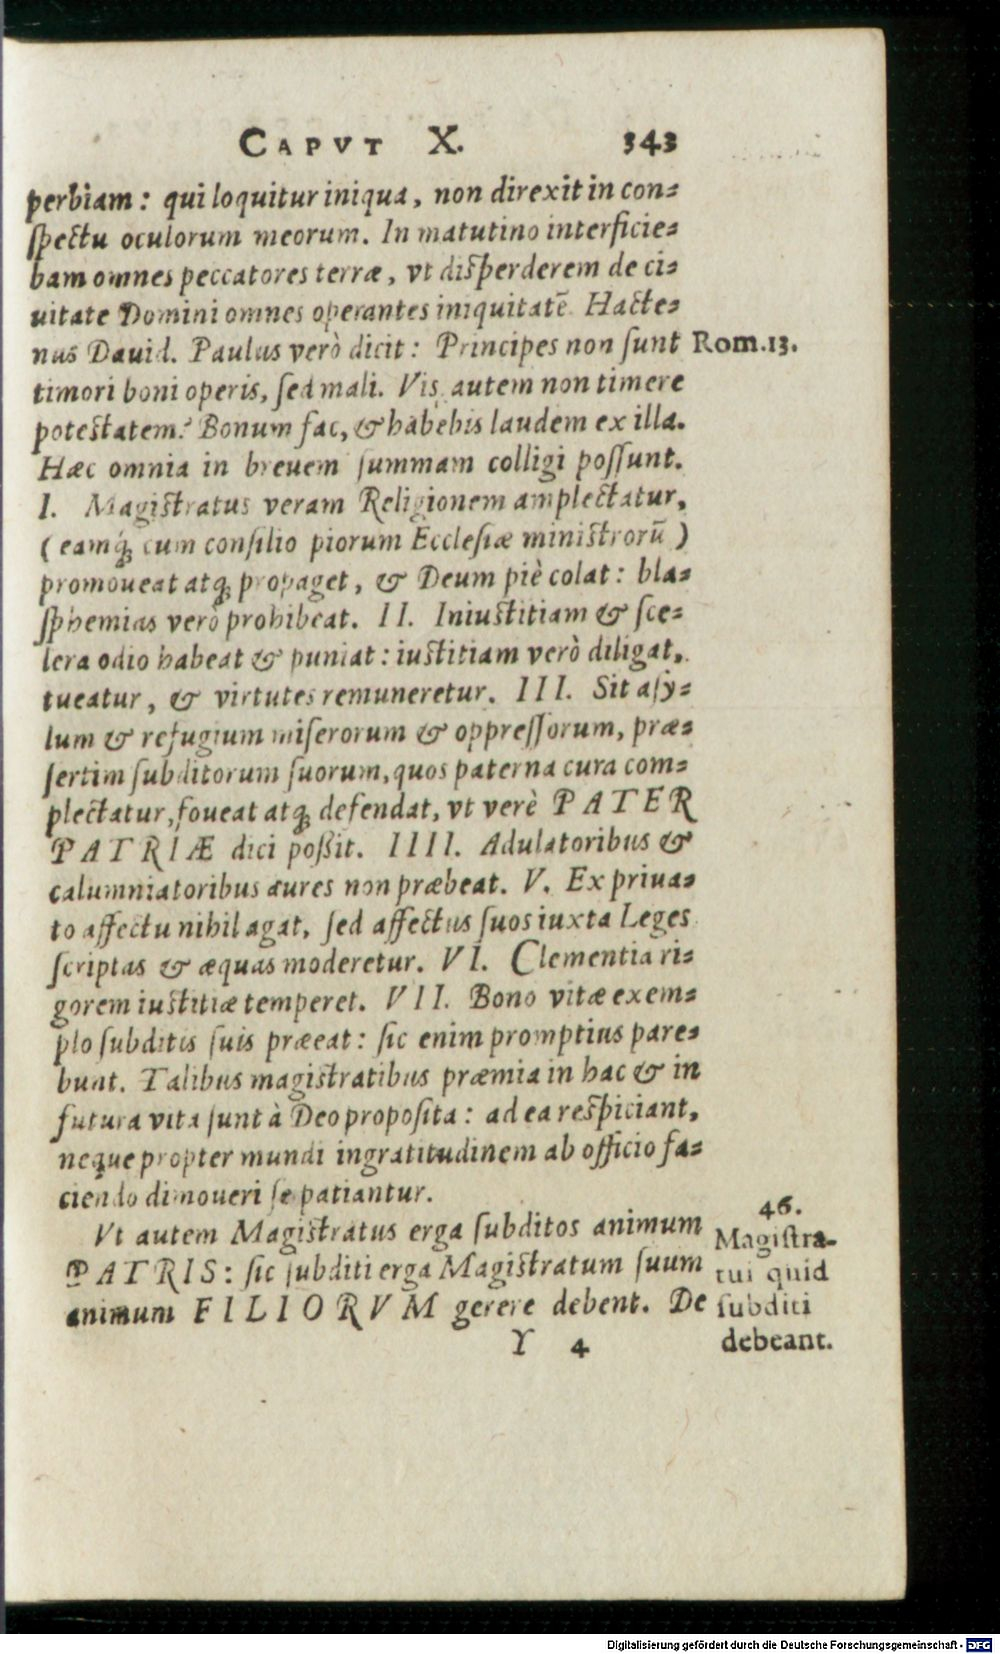 CAPVT X. 343
perbiam: qui loquitur iniqua, non direxit in con=
spectu oculorum meorum. In matutino interficie=
bam omnes peccatores terræ, vt disperderem de ci=
uitate Domini omnes operantes iniquitatē. Hacte=
nus Dauid. Paulus verò dicit: Principes non sunt
Rom.13.
timori boni operis, sed mali. Vis autem non timere
potestatem? Bonum fac, & habebis laudem ex illa.
Hæc omnia in breuem summam colligi possunt.
I. Magistratus veram Religionem amplectatur,
(eamq́; cum consilio piorum Ecclesiæ ministrorū)
promoueat atq; propaget, & Deum piè colat: bla=
sphemias verò prohibeat. II. Iniustitiam & sce=
lera odio habeat & puniat: iustitiam verò diligat,
tueatur, & virtutes remuneretur. III. Sit asy=
lum & refugium miserorum & oppressorum, præ=
sertim subditorum suorum, quos paterna cura com=
plectatur, foueat atq; defendat, vt verè PATER
PATRIÆ dici poßit. IIII. Adulatoribus &
calumniatoribus aures non præbeat. V. Ex priua=
to affectu nihil agat, sed affectus suos iuxta Leges
scriptas & æquas moderetur. VI. Clementia ri=
gorem iustitiæ temperet. VII. Bono vitæ exem=
plo subditis suis præeat: sic enim promptius pare=
bunt. Talibus magistratibus præmia in hac & in
futura vita sunt à Deo proposita: ad ea respiciant,
neque propter mundi ingratitudinem ab officio fa=
ciendo dimoueri se patiantur.
Vt autem Magistratus erga subditos animum
PATRIS: sic subditi erga Magistratum suum
animum FILIORVM gerere debent. De
46.
Magistra-
tui quid
subditi
debeant.
Y 4
Digitalisierung gefördert durch die Deutsche Forschungsgemeinschaft - DFG